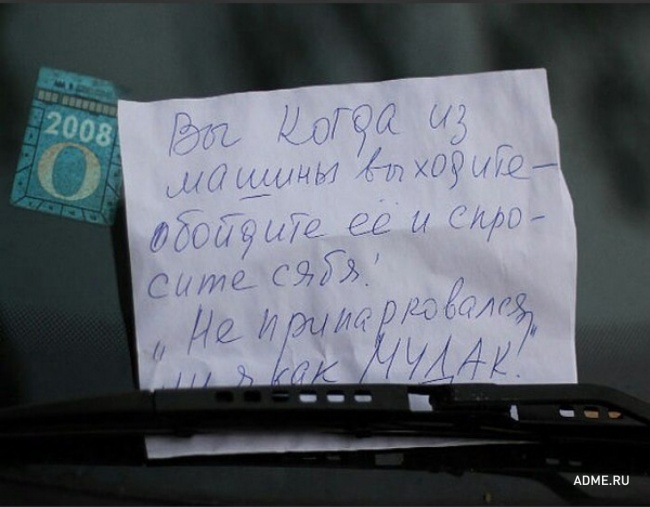 2008
О
Вы когда из
машины выходите-
обойдите её и спро-
сите сябя!
„Не припарковался
ли я как МУДАК!"
ADME.RU